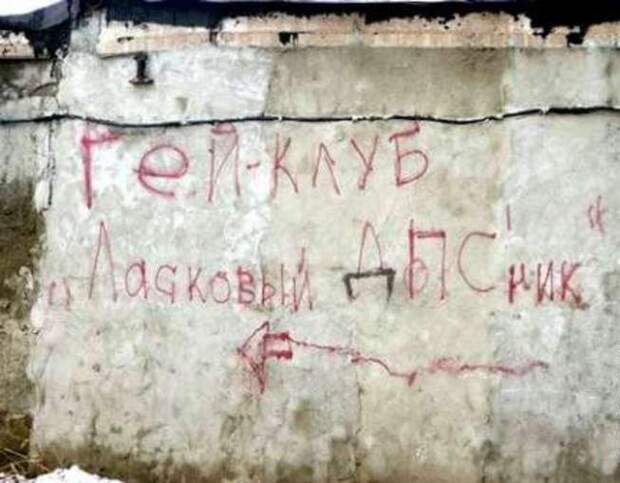 Гей-клуб
„Ласковый ДПС'ник"